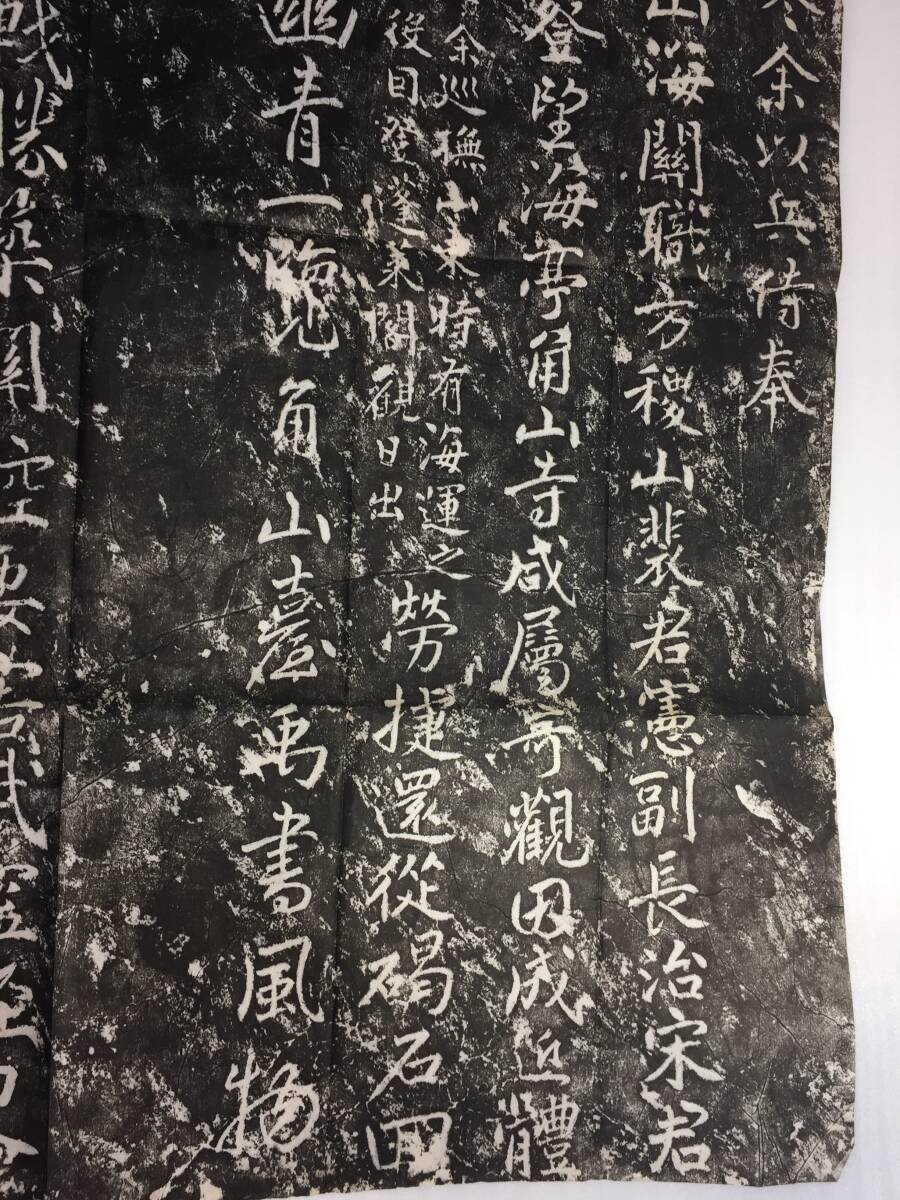 冬余以兵侍奉
山海關職方稷山裴君憲副長治宋君
登望海亭角山寺咸屬奇觀因成近體
余巡撫山東時有海運之
役因登蓬萊閣觀日出
勞捷還從碣石田
幽青一覽角山臺禹書風物
勝築關空要害